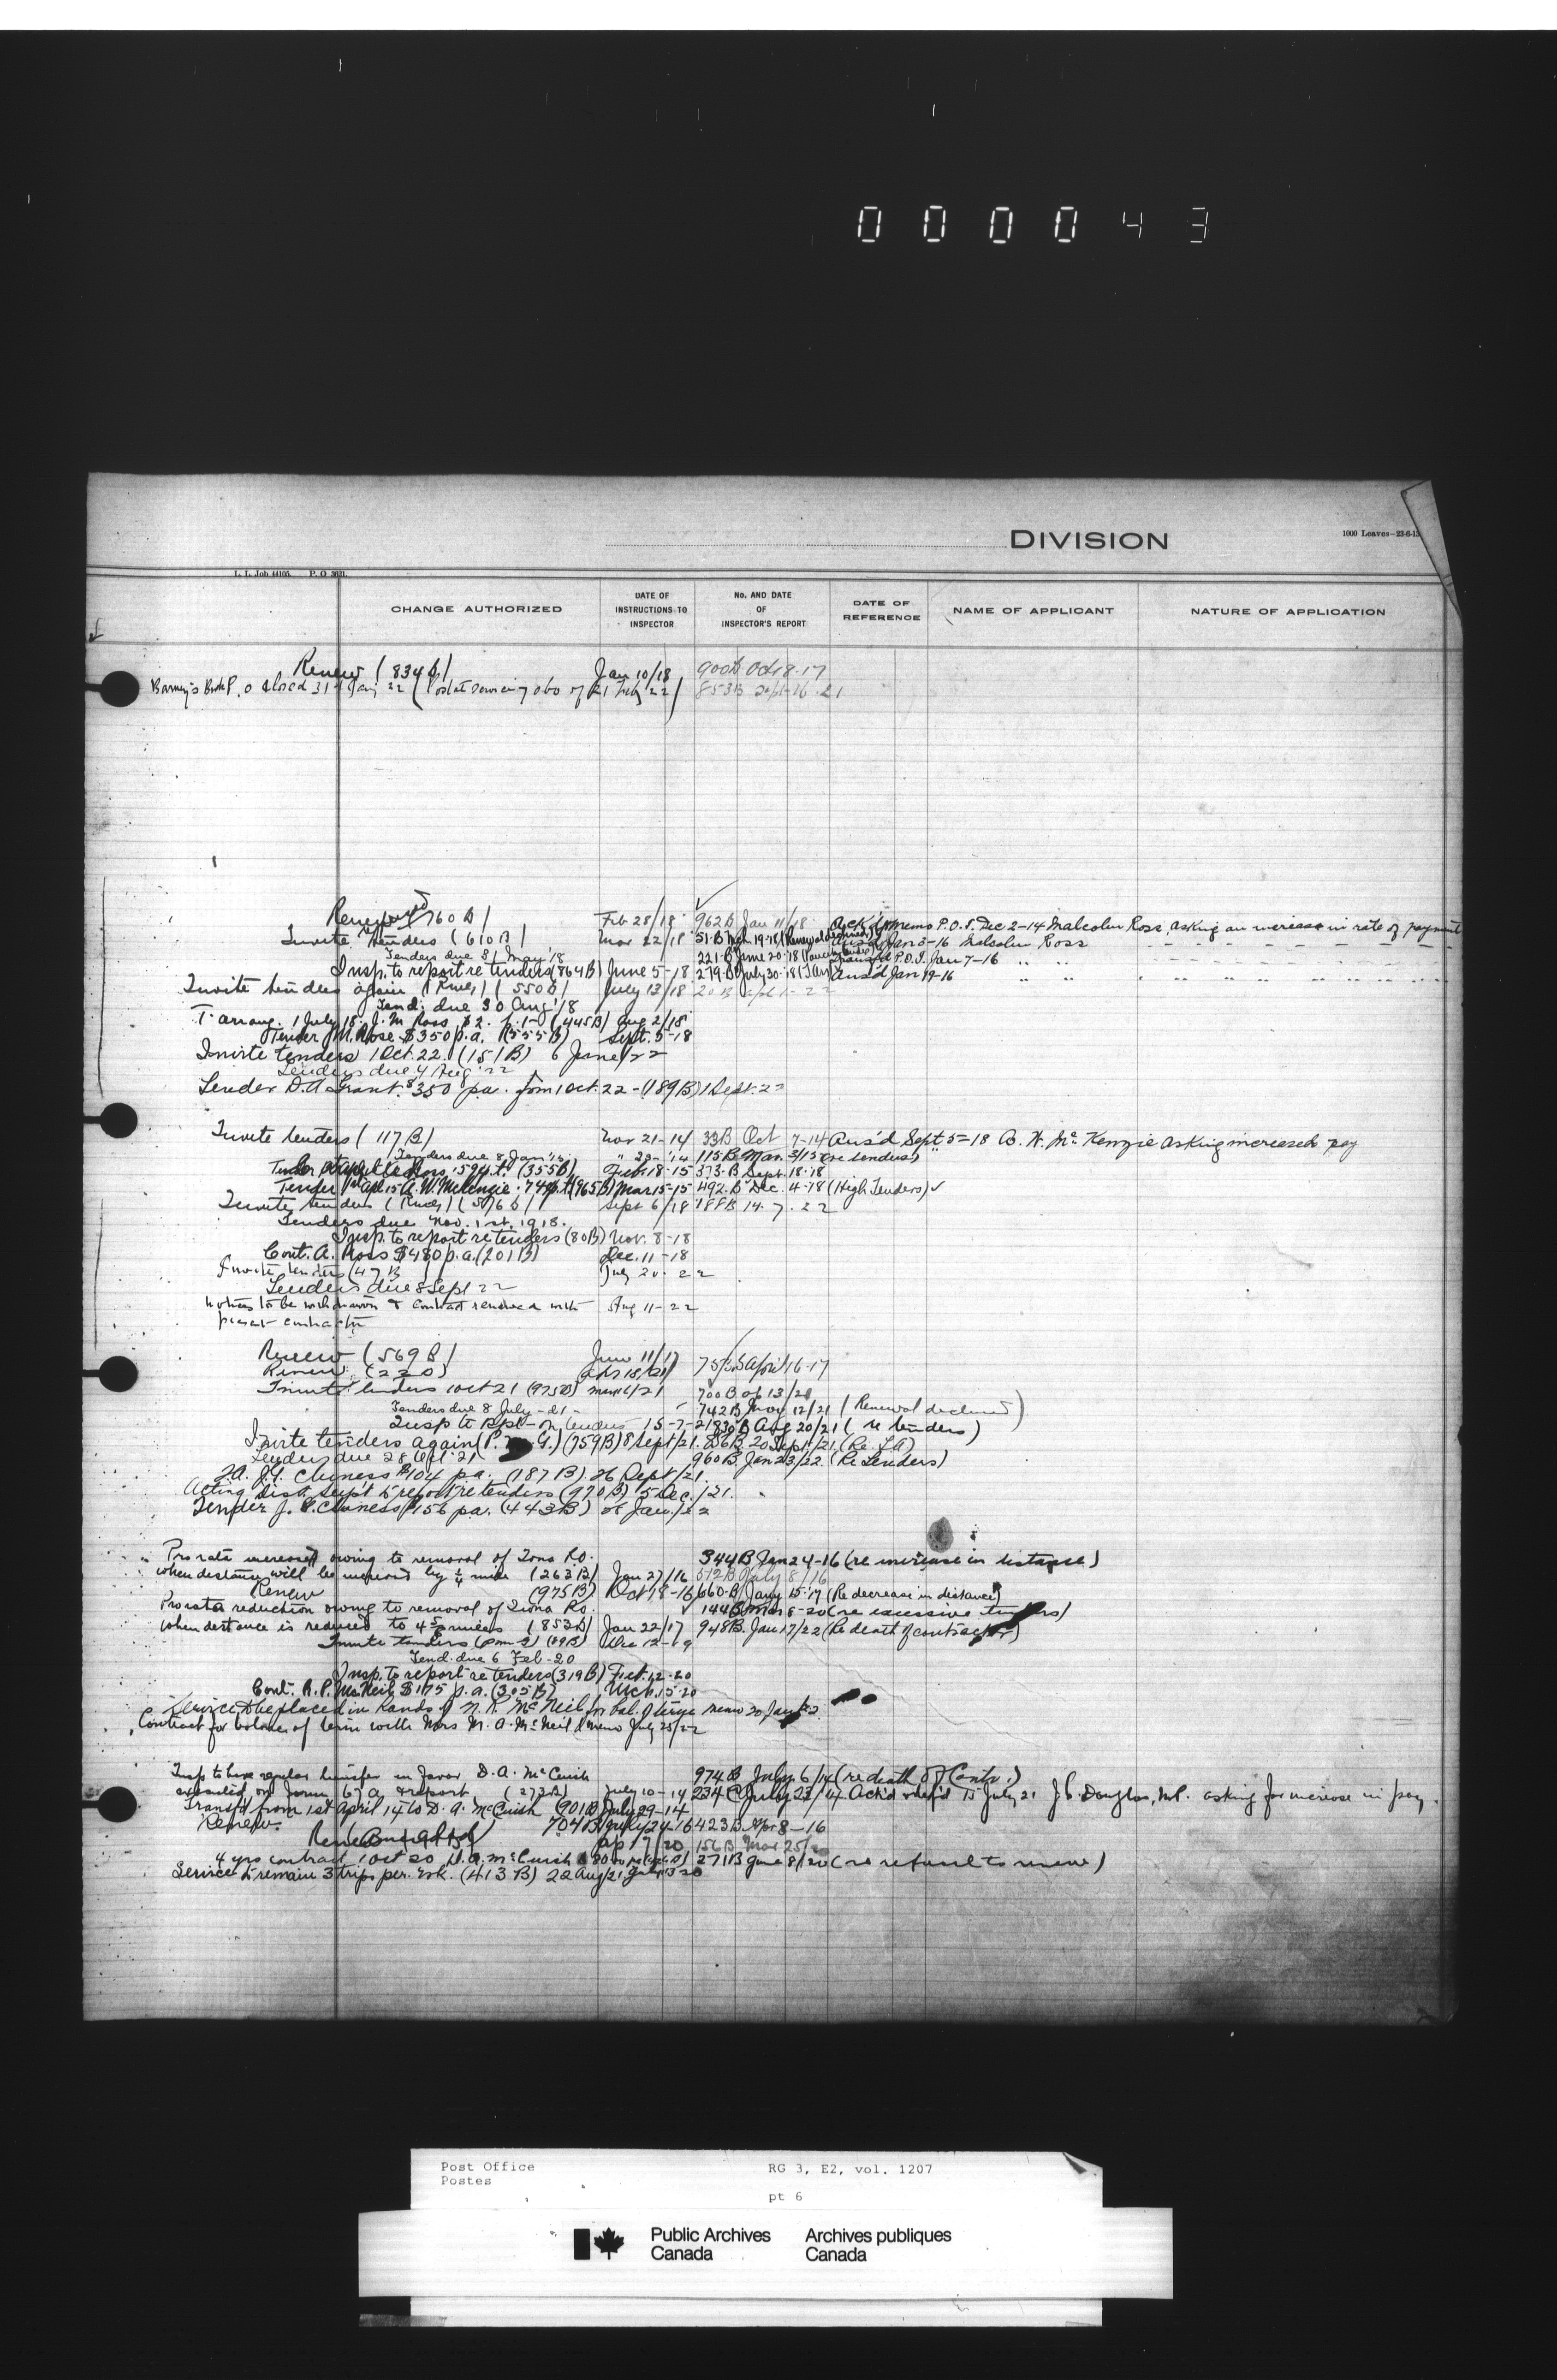 000043
DIVISION
1000 Leaves-23-6-13
L. L. Job 44105. P. O 3621.
CHANGE AUTHORIZED
DATE OF INSTRUCTIONS TO INSPECTOR
No. AND DATE OF INSPECTOR'S REPORT
DATE OF REFERENCE
NAME OF APPLICANT
NATURE OF APPLICATION
Renew (834 B) Jan 10/18 900B Oct 18-17
P.O closed 31st Jany 22 21 Feby 22) 853B Sept 16-21
760 B) Feb 28/18 962B Jan 11/18 Ack'd memo P.O.S. Dec 2-14 Malcolm Ross, asking an increase in rate of payment
Invite tenders (610B) Mar 22/18 51-B 19-18 (Renewal declined) Ans'd Jan 5-16 Malcolm Ross
Tenders due 31 May '18 221-B June 20-18 P.O.I. Jan 7-16
Insp. to report re tenders (864B) June 5-18 279-B July 30-18 Ans'd Jan 19-16
Invite tenders again (550B) July 13/18
Tend. due 30 Aug '18
T arrang. 1 July 18. J. M Ross $2. (445B) Aug 2/18
Tender J. M. Rose $350 p.a. (555B) Sept. 5-18
Invite tenders 1 Oct. 22. (151B) 6 June/22
Tenders due 4 Aug '22
Tender D. A Grant. $350 pa. from 1 Oct. 22 - (189B) 1 Sept. 22
Invite tenders (117 B) Nov 21-14 33B Oct 7-14 Ans'd Sept 5-18 A. W. McKenzie asking increased pay
Tenders due 8 Jan '15 " 23- '14 115B Mar. 3/15 (re tenders)
(355B) Feb. 18-15 373-B Sept. 18-18
Tender 1st Apl 15 A. W. McKenzie. (965B) Mar 15-15 492. B Dec. 4-18 (High Tenders) ✓
Invite tenders (576B) Sept 6/18 188B 14-7-22
Tenders due Nov. 1st. 1918.
Insp. to report re tenders (80B) Nov. 8-18
Cont. A. Ross $480 p.a. (201B) Dec. 11-18
Invite tenders (47B) July 20-22
Tenders due 8 Sept 22
Notices to be withdrawn & contract renewed with Aug 11-22
present contractor
Renew (569 B) June 11/17 April 16-17
Renew (220)
Invite tenders 1 Oct 21 (975B) 700B 13/20
Tenders due 8 July-21- 742B May 12/21 (Renewal declined)
Insp to rept on tenders 15-7-21 830B Aug 20/21 (re tenders)
Invite tenders again (P. M. G.) (759B) 8 Sept/21. 86B. 20 Sept/21. (Re T.A)
Tenders due 28 Oct. 21 960B. Jan 23/22. (Re Tenders)
$104 pa. (187B). 26 Sept/21.
Acting Dist. Supt to report re tenders (970B) 5 Dec./21.
Tender $156 pa. (443B) 26 Jan./22
Pro rata increase owing to removal of Iona Rd. 344B Jan 24-16 (re increase in distance)
when distance will be increased by ¼ mile (263B) Jan 27/16 612B July 8/16
Renew (975B) Oct 18-16 660-B Jany 15-17 (Re decrease in distance)
Pro rata reduction owing to removal of Iona Ro. 144B Mar 8-20 (re excessive tenders)
when distance is reduced to 4⅝ miles (852B) Jan 22/17 948B. Jan 17/22 (Re death of contractor)
Invite tenders Dec 12-19
Tend. due 6 Feb-20
Insp. to report re tenders (319B) Feb. 12-20
Cont. R. P. McNeil $175 p.a. (305B) Mch. 15-20
Service to be placed in hands of N. A. McNeil for bal. of term memo 20 Jan 22
Contract for balance of term with Mrs N. A. McNeil (memo July 25/22
Insp to have regular transfer in favor D. A. McCuish 974B July 6/14 (re death of Contr.)
executed on Form 67 A & report (273B) July 10-14 234C July 22/14 Ack'd 15 July 21 J. C. Douglas, M.P. asking for increase in pay.
Transf'd from 1st April 14 to D. A. McCuish (901B) July 29-14
Renew. 704B July 24-16 423B Apr 8-16
Ap 17/20 156B Mar 25/20
4 yrs contract 1 Oct 20 D. A. McCuish 271B June 8/20 (re refusal to renew)
Service to remain 3 trips per. wk. (413 B) 22 Aug/21
Post Office
Postes
RG 3, E2, vol. 1207
pt 6
Public Archives Canada
Archives publiques Canada